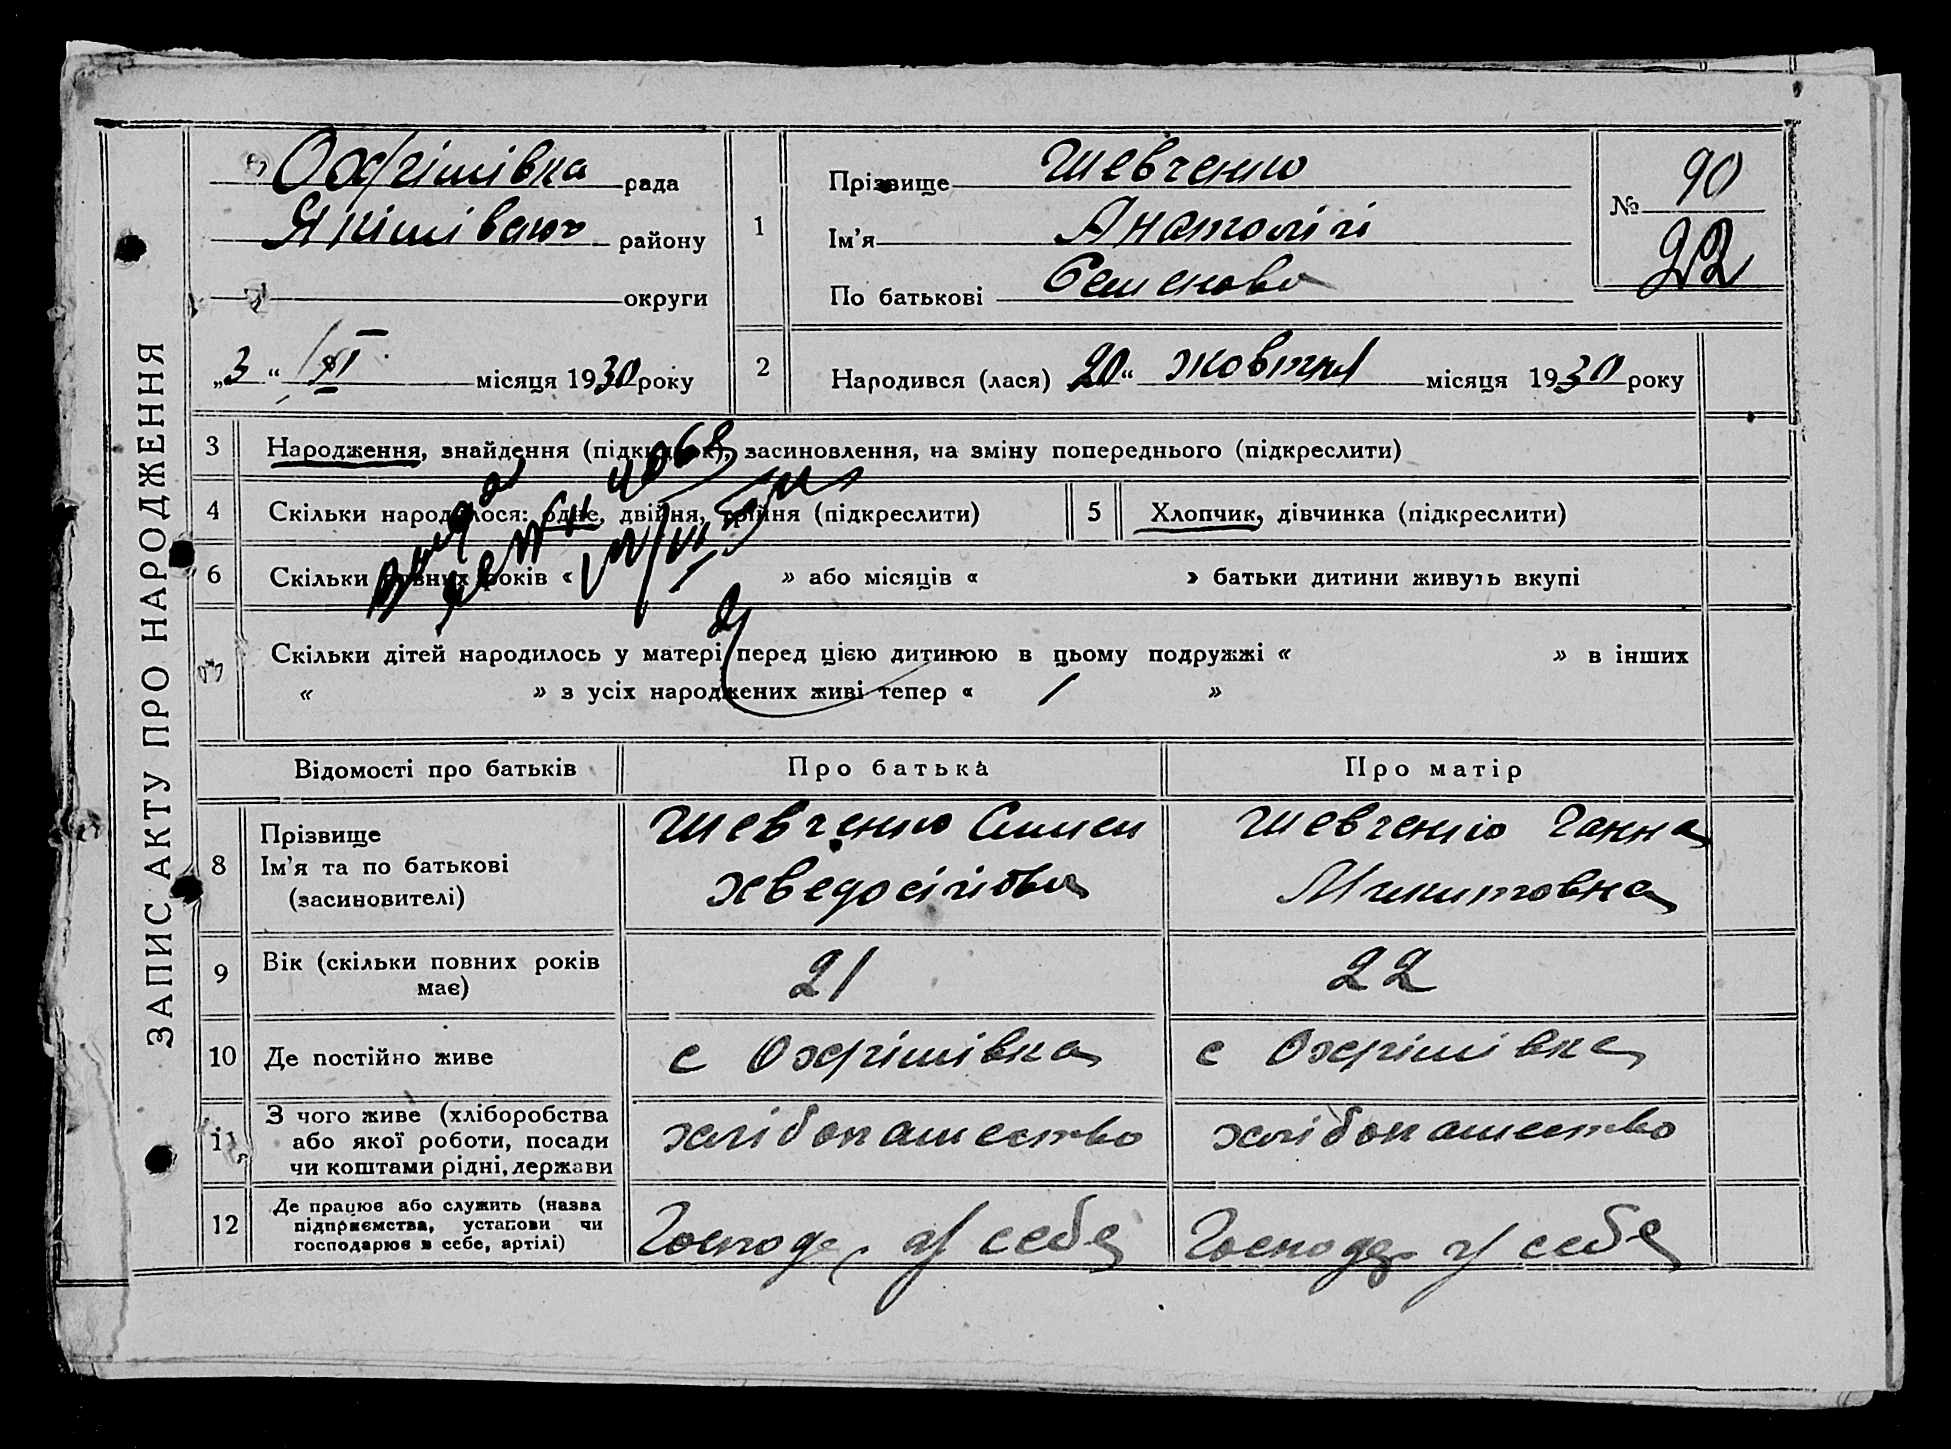 ЗАПИС АКТУ ПРО НАРОДЖЕННЯ
Охрімівка рада
Якімівськ району
округи
„3“ XI місяця 1930 року
1
Прізвище Шевченко
Ім'я Анатолій
По батькові Семенов
№ 90
22
2
Народився (лася) 20“ жовтня місяця 1930 року
3 Народження, знайдення (підкидьок), засиновлення, на зміну попереднього (підкреслити)
4 Скільки народилося: одне, двійня, трійня (підкреслити)
5 Хлопчик, дівчинка (підкреслити)
6 Скільки повних років « » або місяців « » батьки дитини живуть вкупі
7 Скільки дітей народилось у матері перед цією дитиною в цьому подружжі « » в інших
« » з усіх народжених живі тепер « 1 »
Відомості про батьків Про батька Про матір
8 Прізвище
Ім'я та по батькові
(засиновителі)
Шевченко Симен
Хведосійов
Шевченко Ганна
Микитовна
9 Вік (скільки повних років
має)
21
22
10 Де постійно живе
с Охрімівка
с Охрімівка
11 З чого живе (хліборобства
або якої роботи, посади
чи коштами рідні, держави
хлібопашество
хлібопашество
12 Де працює або служить (назва
підприємства, установи чи
господарює в себе, артілі)
Господ у себе
Господ у себе